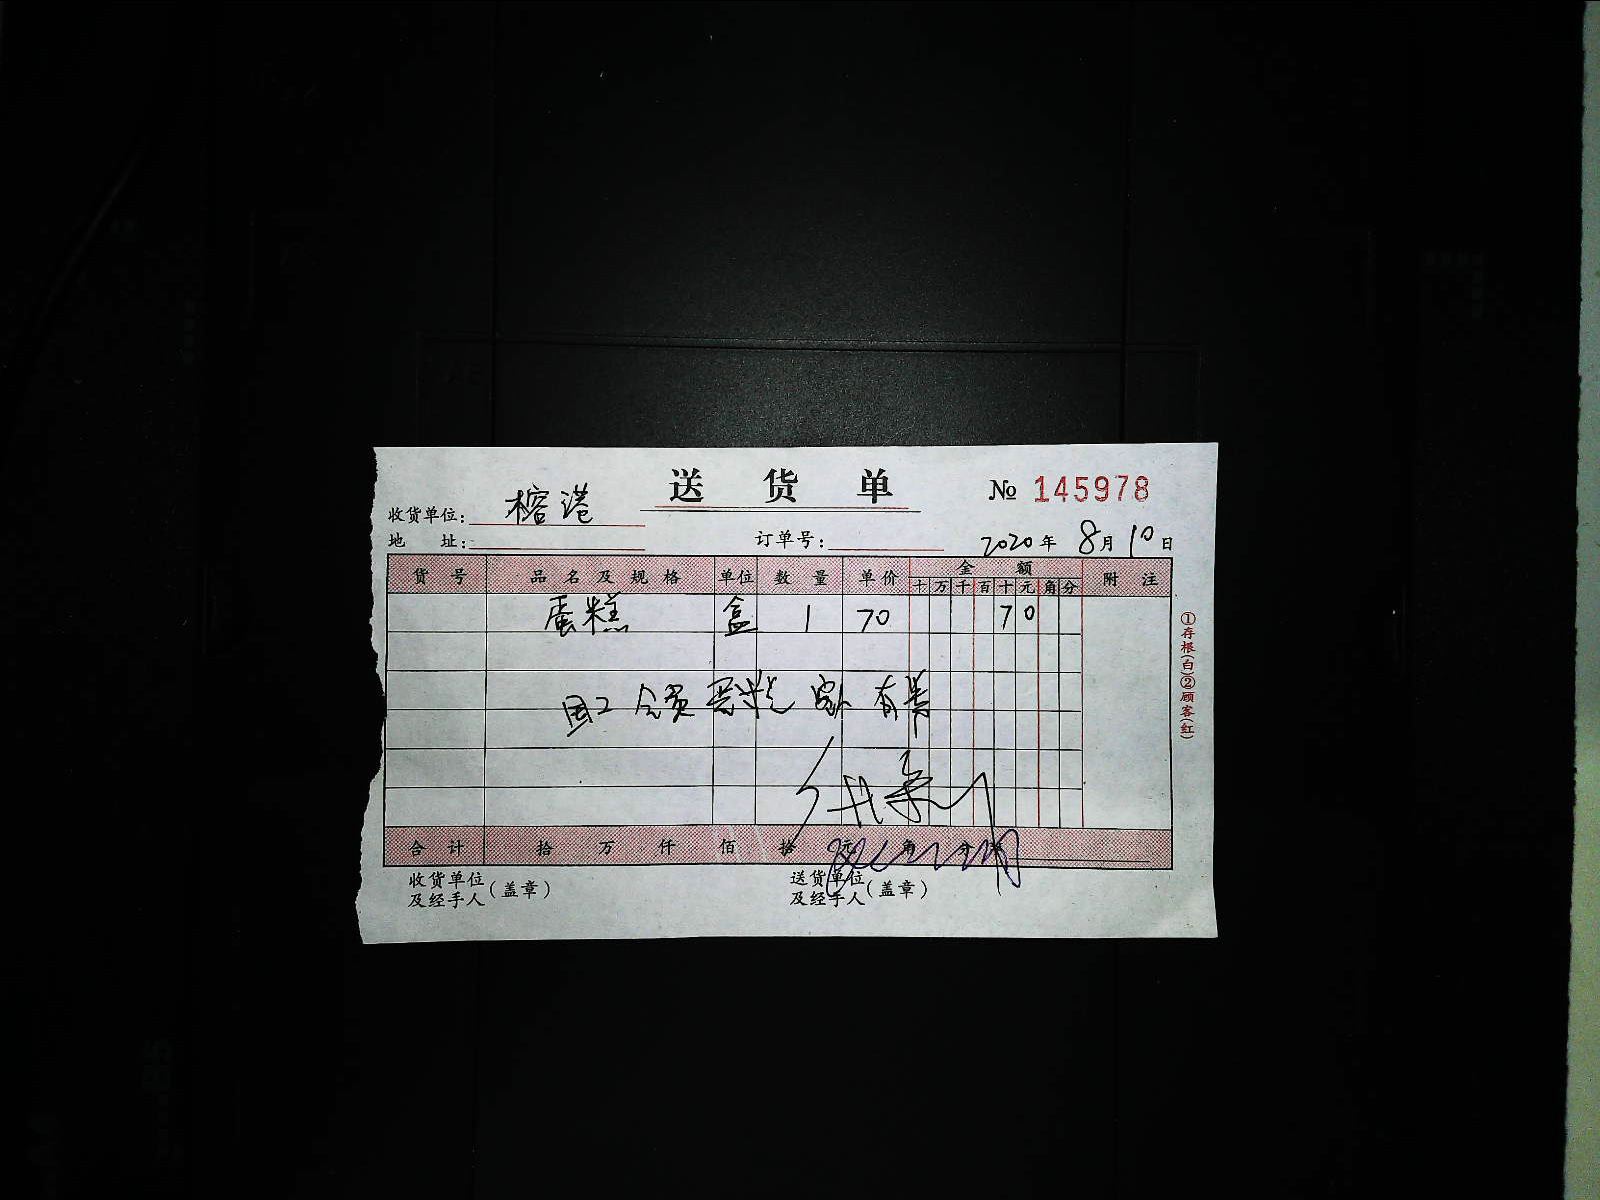 送货单
№ 145978
收货单位: 榕港
地 址: 订单号: 2020年 8月 10日
货号 品名及规格 单位 数量 单价 金额 附注
十 万 千 百 十 元 角 分
蛋糕 盒 1 70 70
合计 拾 万 仟 佰 拾 元 角 分
收货单位及经手人(盖章) 送货单位及经手人(盖章)
①存根(白)②顾客(红)